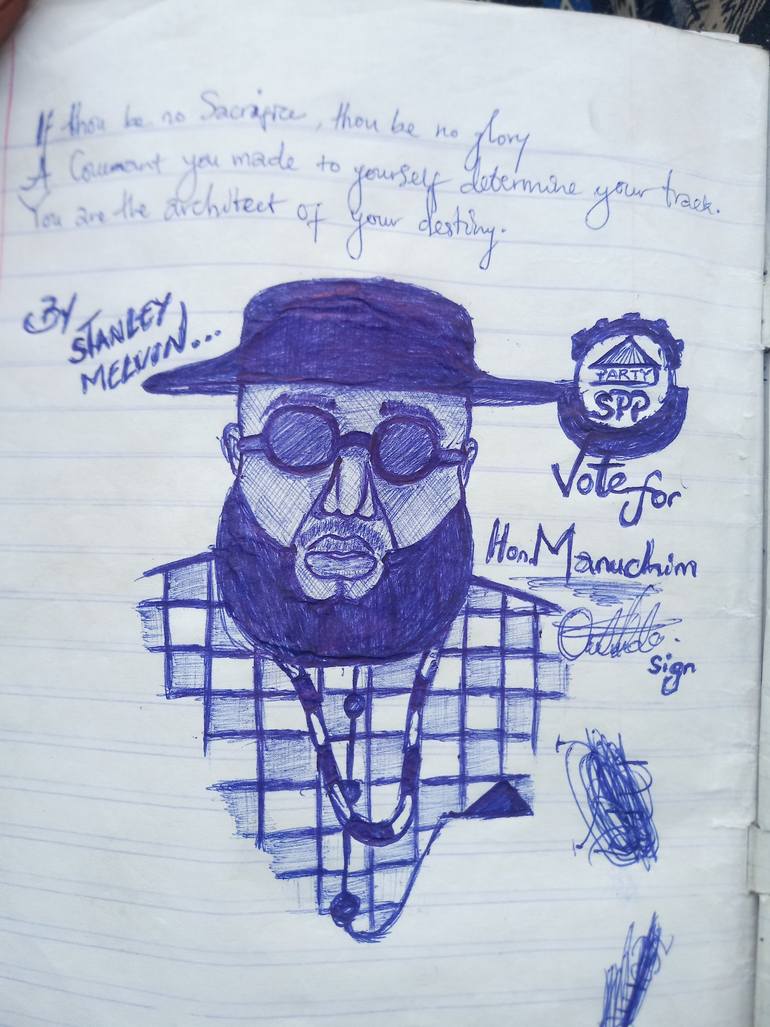 If thou be no Sacrifice, thou be no glory
A Covenant you made to yourself determine your track.
You are the architect of your destiny.
By
STANLEY
MELVIN...
PARTY
SPP
Vote for
Hon. Manuchim
sign